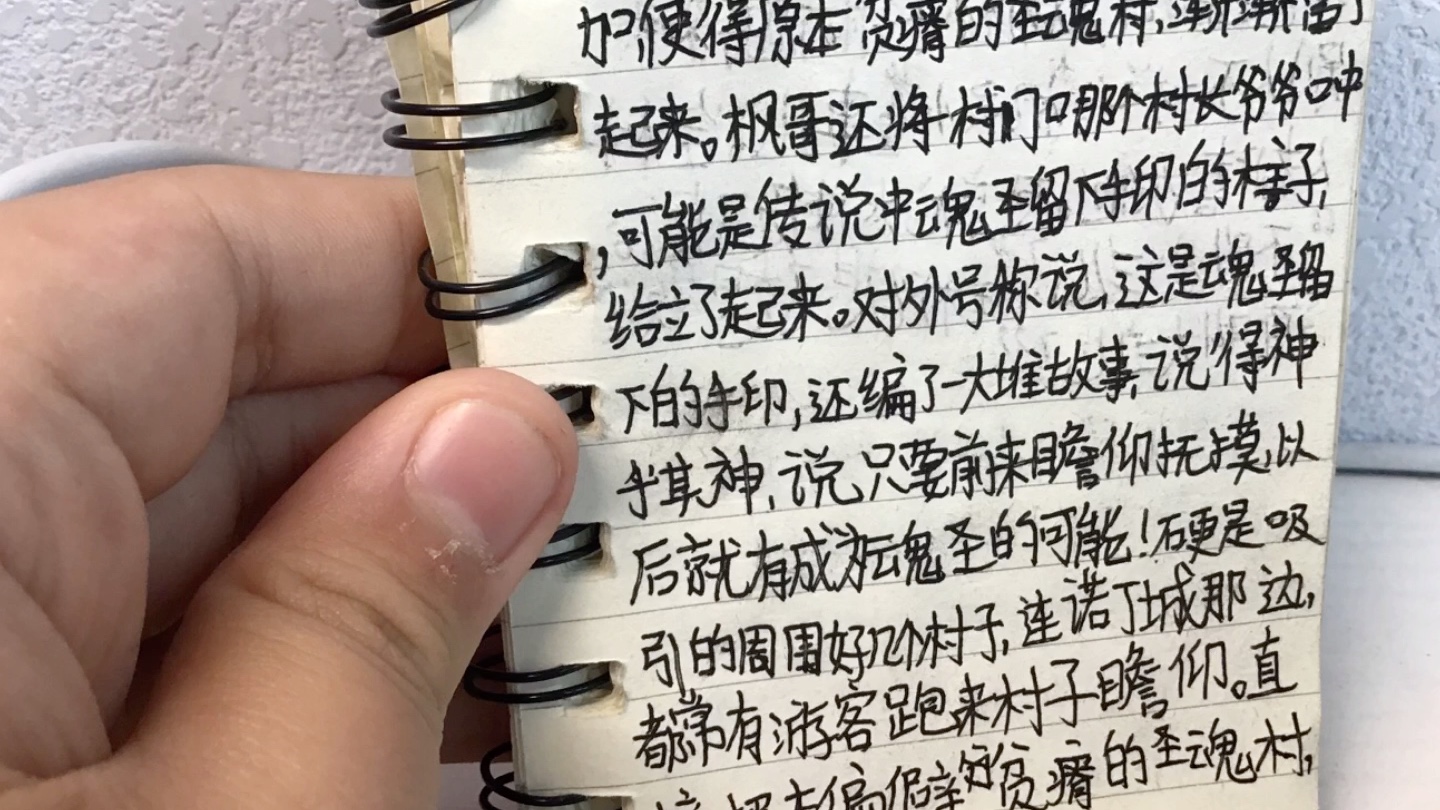 加,使得原本贫瘠的圣魂村,渐渐富了
起来。枫哥还将村门口那个村长爷爷口中
,可能是传说中魂圣留下手印的柱子,
给立了起来。对外号称说,这是魂圣留
下的手印,还编了一大堆故事,说得神
乎其神,说只要前来瞻仰抚摸,以
后就有成为魂圣的可能!硬是吸
引的周围好几个村子,连诺丁城那边,
都常有游客跑来村子瞻仰。直
把本偏僻贫瘠的圣魂村,